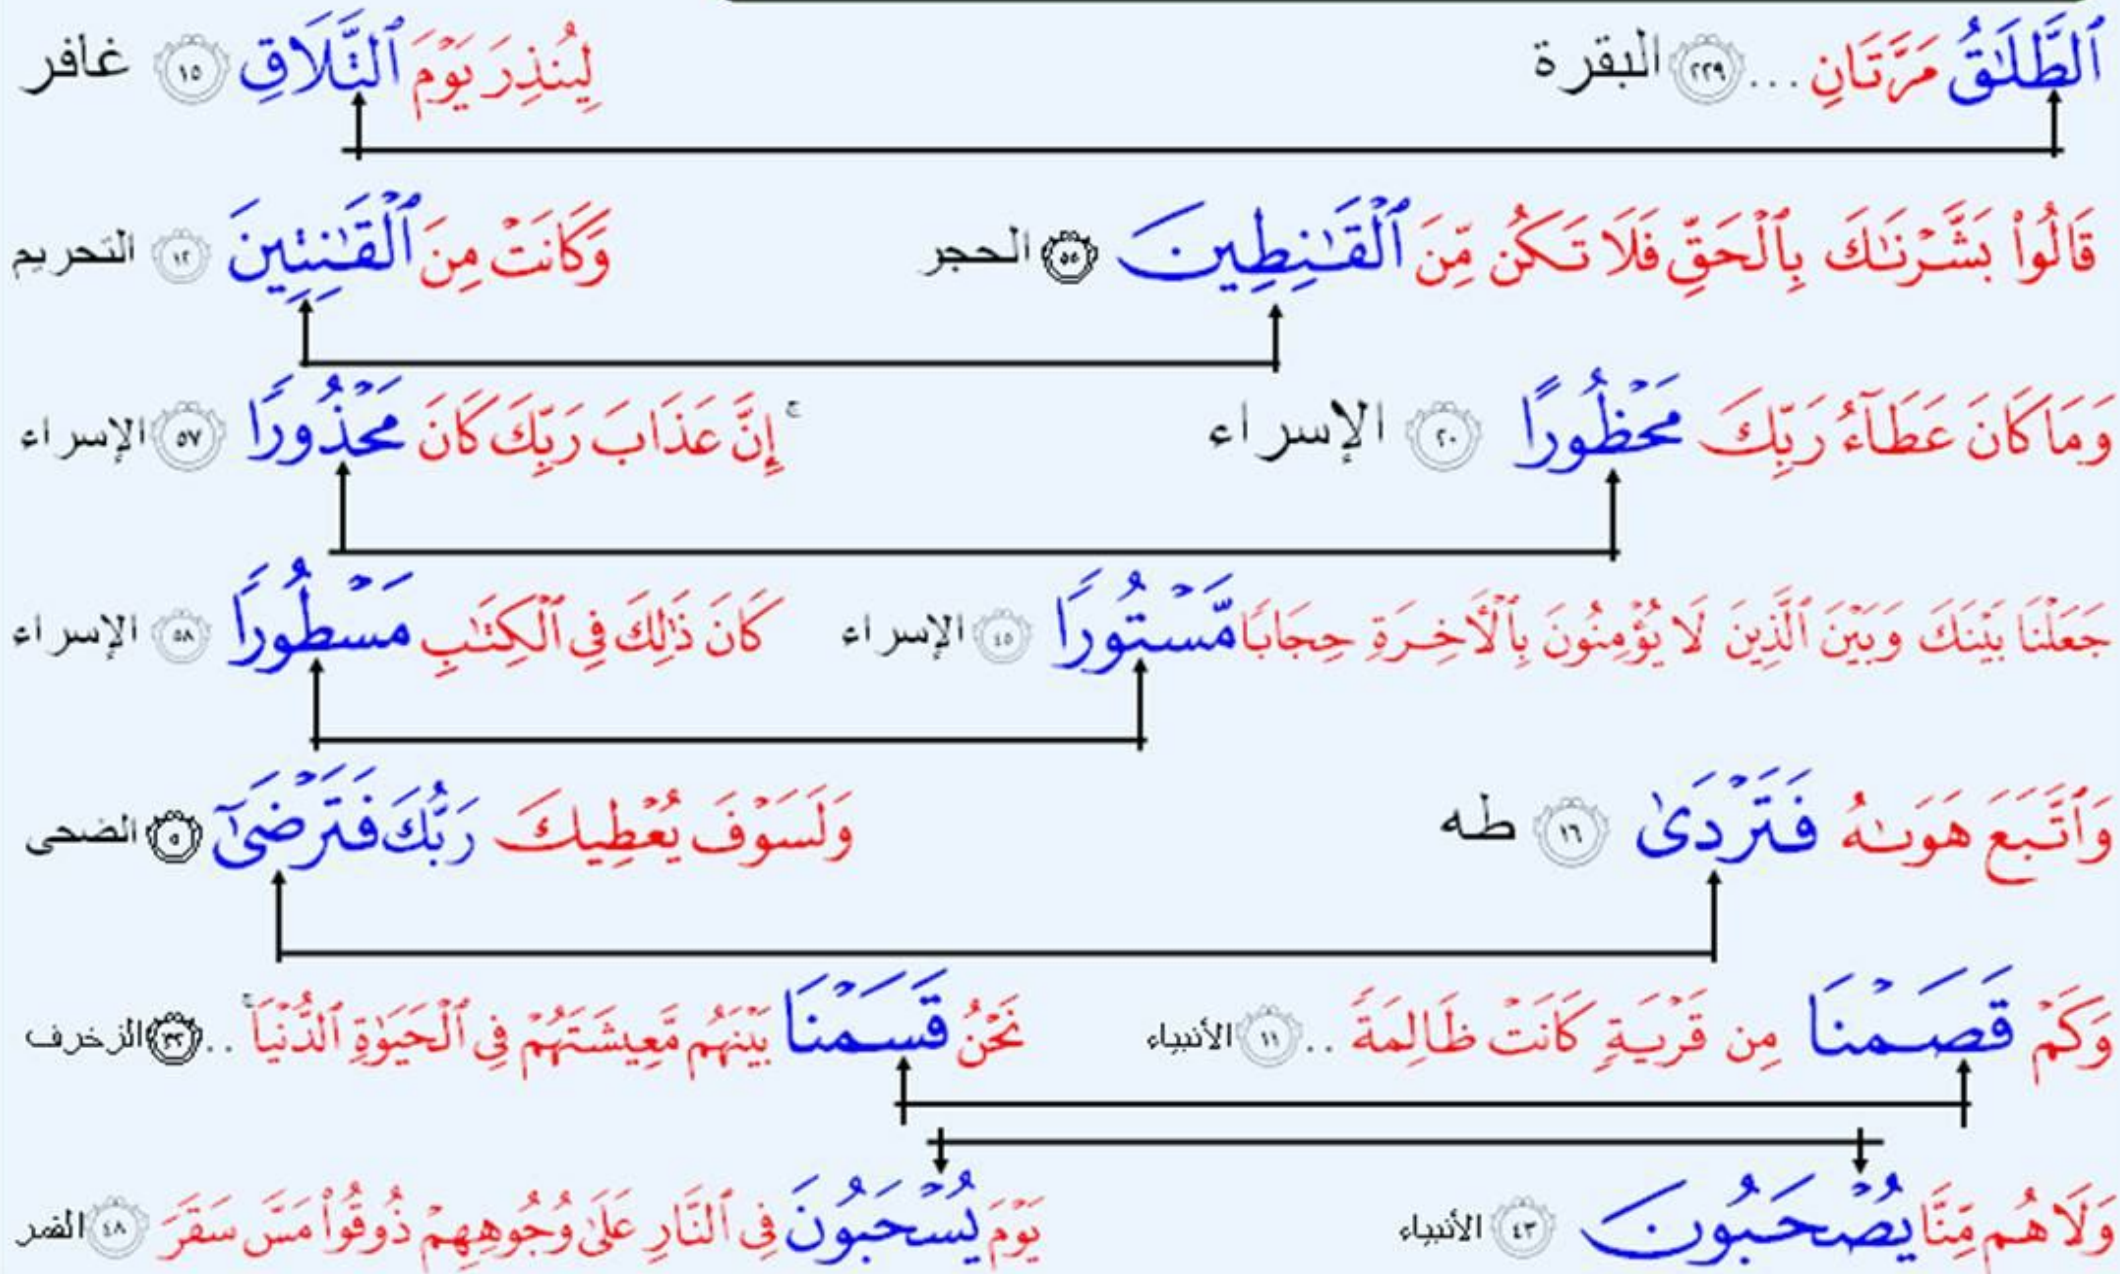 ٱلطَّلَٰقُ مَرَّتَانِ ... ٢٢٩ البقرة لِيُنذِرَ يَوْمَ ٱلتَّلَاقِ ١٥ غافر
قَالُوا۟ بَشَّرْنَٰكَ بِٱلْحَقِّ فَلَا تَكُن مِّنَ ٱلْقَٰنِطِينَ ٥٥ الحجر وَكَانَتْ مِنَ ٱلْقَٰنِتِينَ ١٢ التحريم
وَمَا كَانَ عَطَآءُ رَبِّكَ مَحْظُورًا ٢٠ الإسراء ۚ إِنَّ عَذَابَ رَبِّكَ كَانَ مَحْذُورًا ٥٧ الإسراء
جَعَلْنَا بَيْنَكَ وَبَيْنَ ٱلَّذِينَ لَا يُؤْمِنُونَ بِٱلْأَخِرَةِ حِجَابًا مَّسْتُورًا ٤٥ الإسراء كَانَ ذَٰلِكَ فِى ٱلْكِتَٰبِ مَسْطُورًا ٥٨ الإسراء
وَٱتَّبَعَ هَوَىٰهُ فَتَرْدَىٰ ١٦ طه وَلَسَوْفَ يُعْطِيكَ رَبُّكَ فَتَرْضَىٰٓ ٥ الضحى
وَكَمْ قَصَمْنَا مِن قَرْيَةٍ كَانَتْ ظَالِمَةً .. ١١ الأنبياء نَحْنُ قَسَمْنَا بَيْنَهُم مَّعِيشَتَهُمْ فِى ٱلْحَيَوٰةِ ٱلدُّنْيَا ۚ .. ٣٢ الزخرف
وَلَا هُم مِّنَّا يُصْحَبُونَ ٤٣ الأنبياء يَوْمَ يُسْحَبُونَ فِى ٱلنَّارِ عَلَىٰ وُجُوهِهِمْ ذُوقُوا۟ مَسَّ سَقَرَ ٤٨ القمر